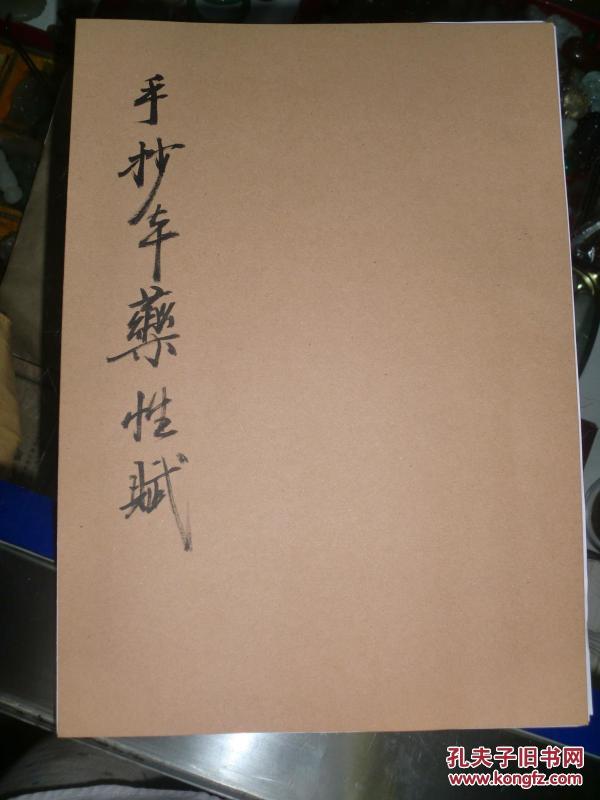 手抄本藥性賦
孔夫子旧书网
www.kongfz.com